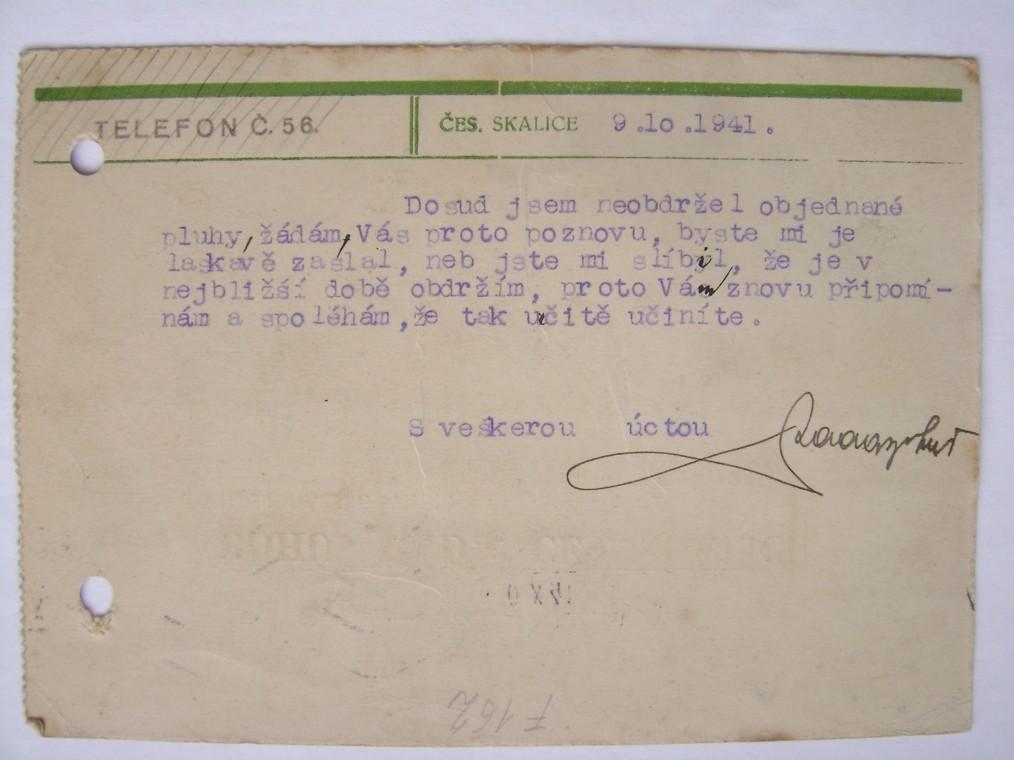 TELEFON Č. 56.
ČES. SKALICE 9.10.1941.
Dosud jsem neobdržel objednané
pluhy, žádám, Vás proto poznovu, byste mi je
laskavě zaslal, neb jste mi slíbil, že je v
nejbližší době obdržím, proto Vám znovu připomí-
nám a spoléhám, že tak učitě učiníte.
S veškerou úctou
F 162